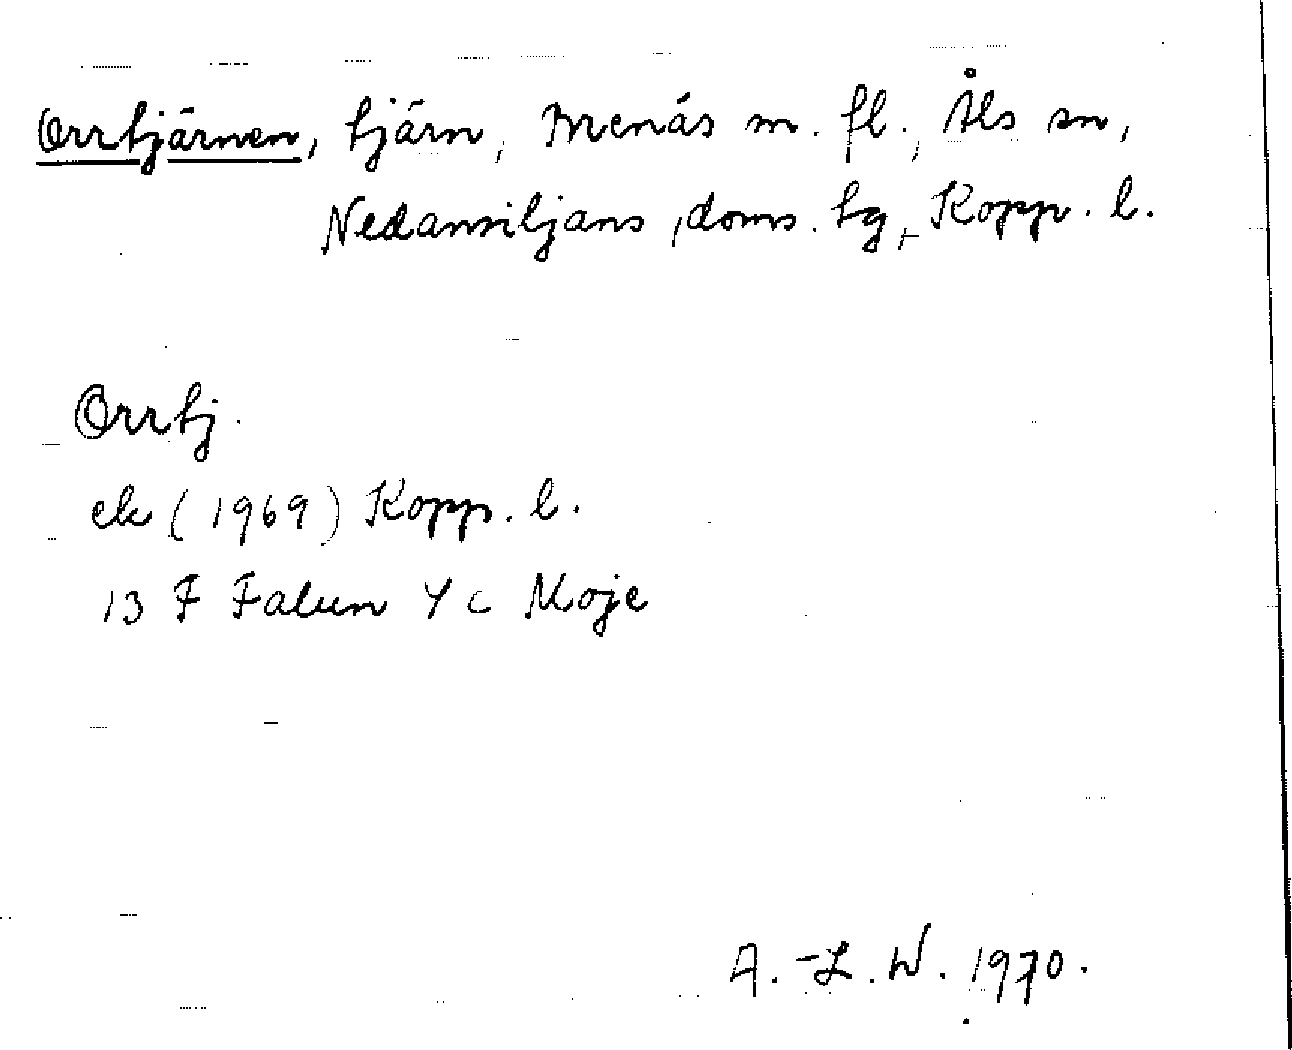 Orrtjärnen, tjärn, Menås m. fl., Åls sn,
Nedansiljans doms. tg, Kopp. l.
Orrtj.
ek (1969) Kopp. l.
13 F Falun 4 c Moje
A.-L. W. 1970.